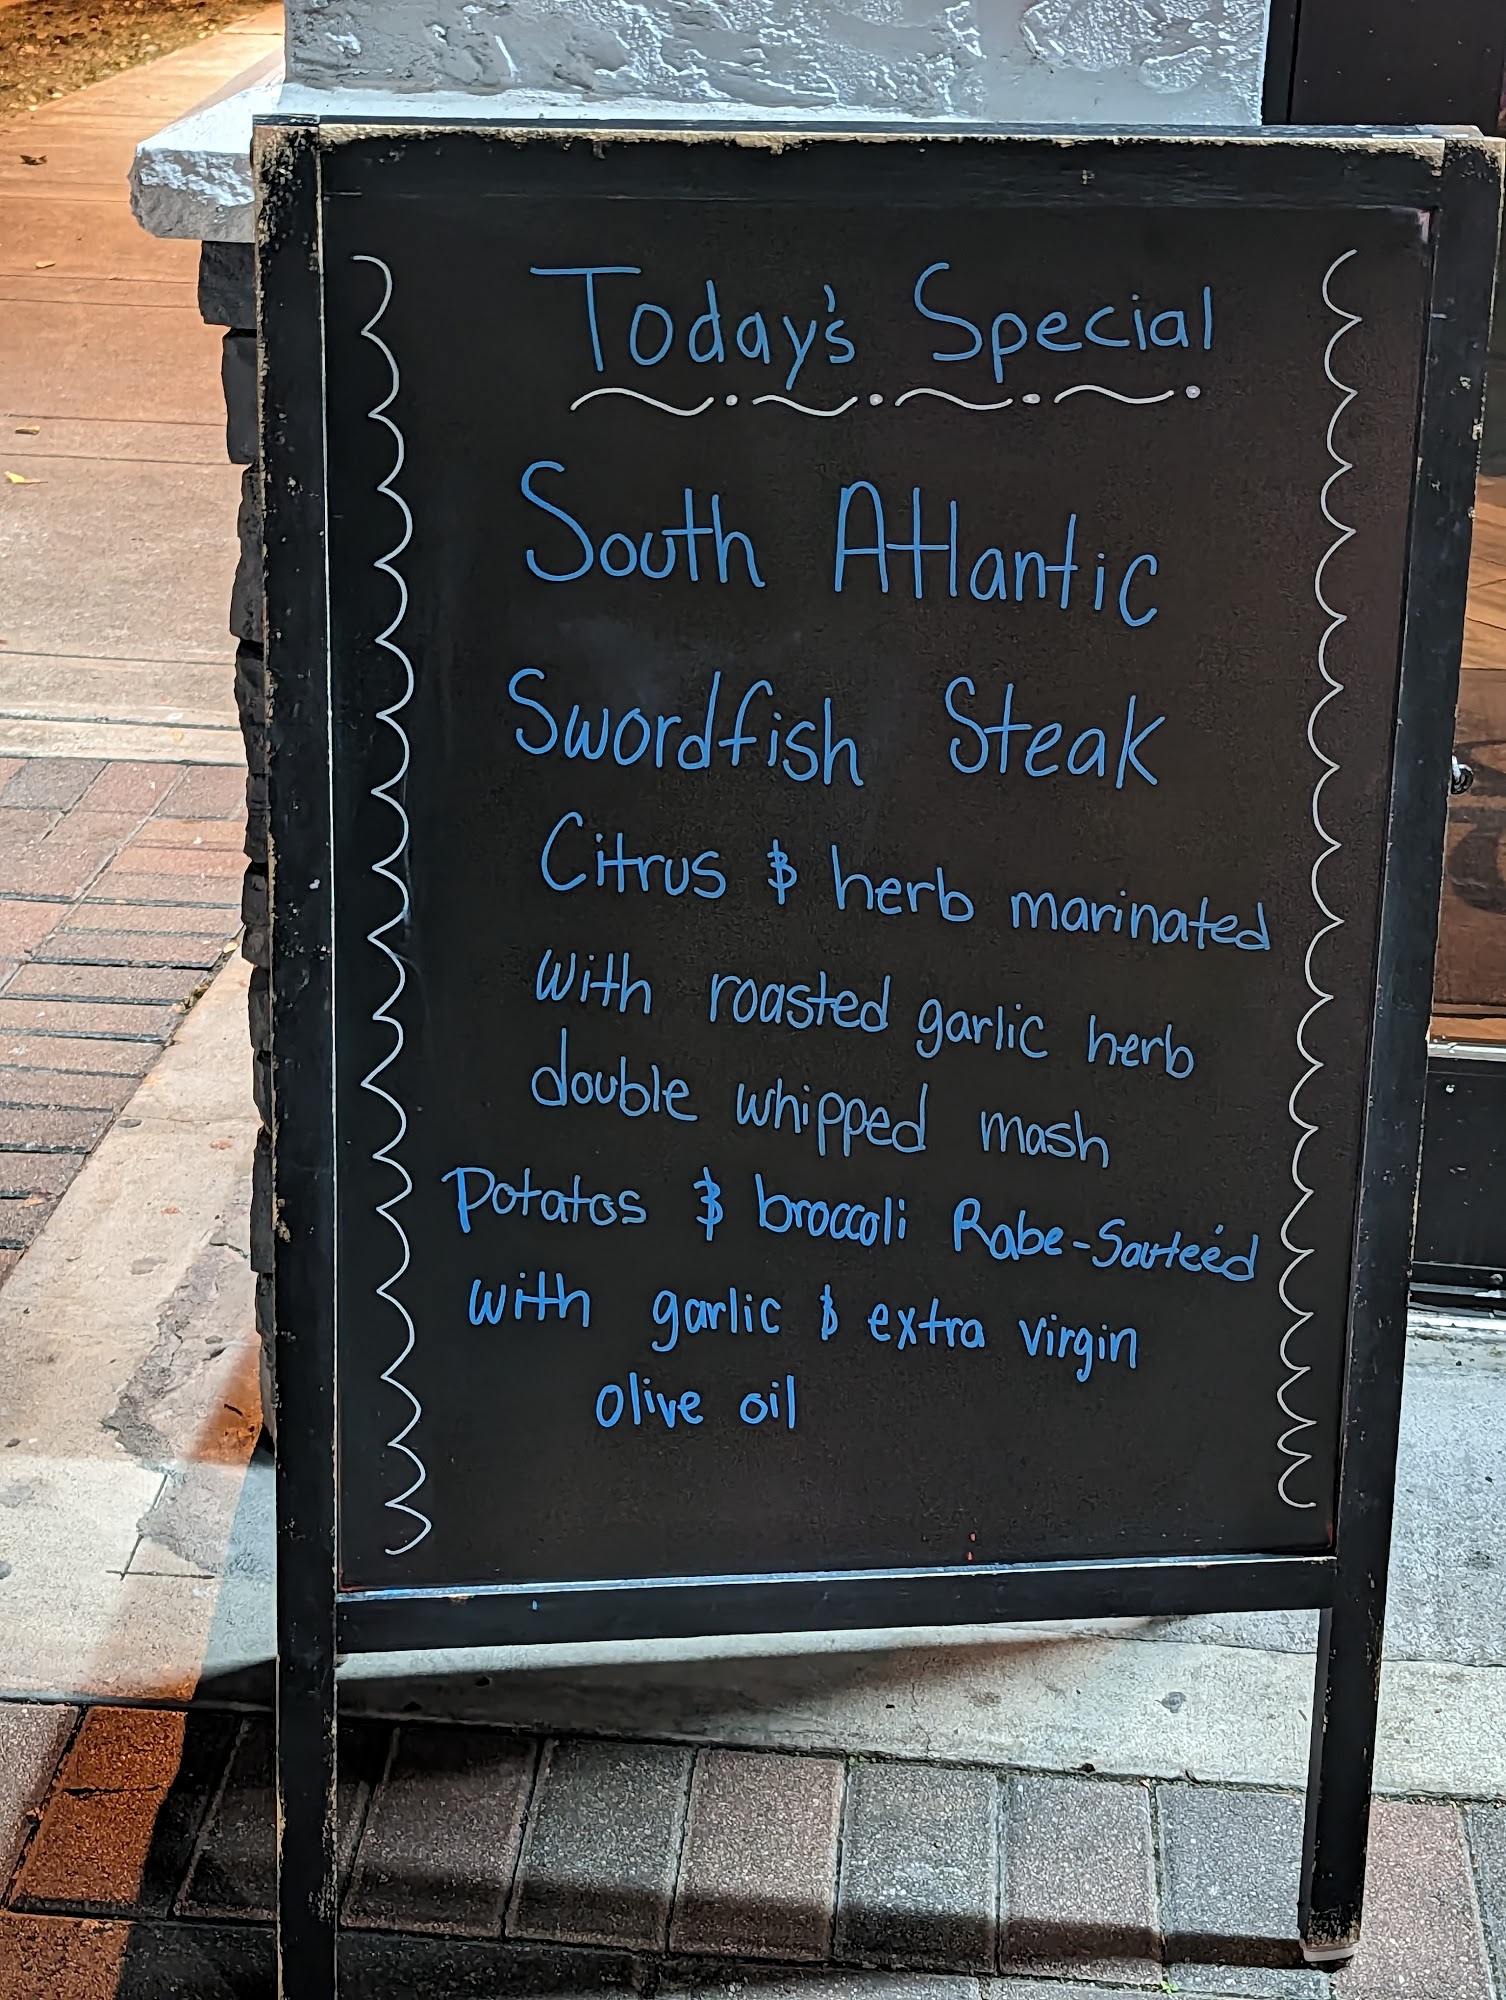 Today's Special
South Atlantic
Swordfish Steak
Citrus & herb marinated
with roasted garlic herb
double whipped mash
Potatos & broccoli Rabe-Sauteéd
with garlic & extra virgin
olive oil